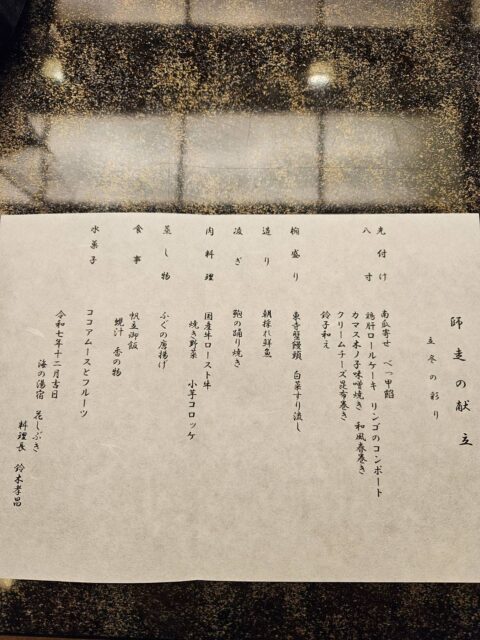 師走の献立
立冬の彩り
先付け 南瓜寄せ べっ甲餡
八寸 鶏肝ロールケーキ リンゴのコンポート
カマス木ノ子味噌焼き 和風春巻き
クリームチーズ昆布巻き
鈴子和え
椀盛り 東寺蟹饅頭 白菜すり流し
造り 朝採れ鮮魚
凌ぎ 鮑の踊り焼き
肉料理 国産牛ロースト牛
焼き野菜 小芋コロッケ
蒸し物 ふぐの唐揚げ
食事 帆立御飯
蜆汁 香の物
水菓子 ココアムースとフルーツ
令和七年十二月吉日
海の湯宿 花しぶき
料理長 鈴木孝昌